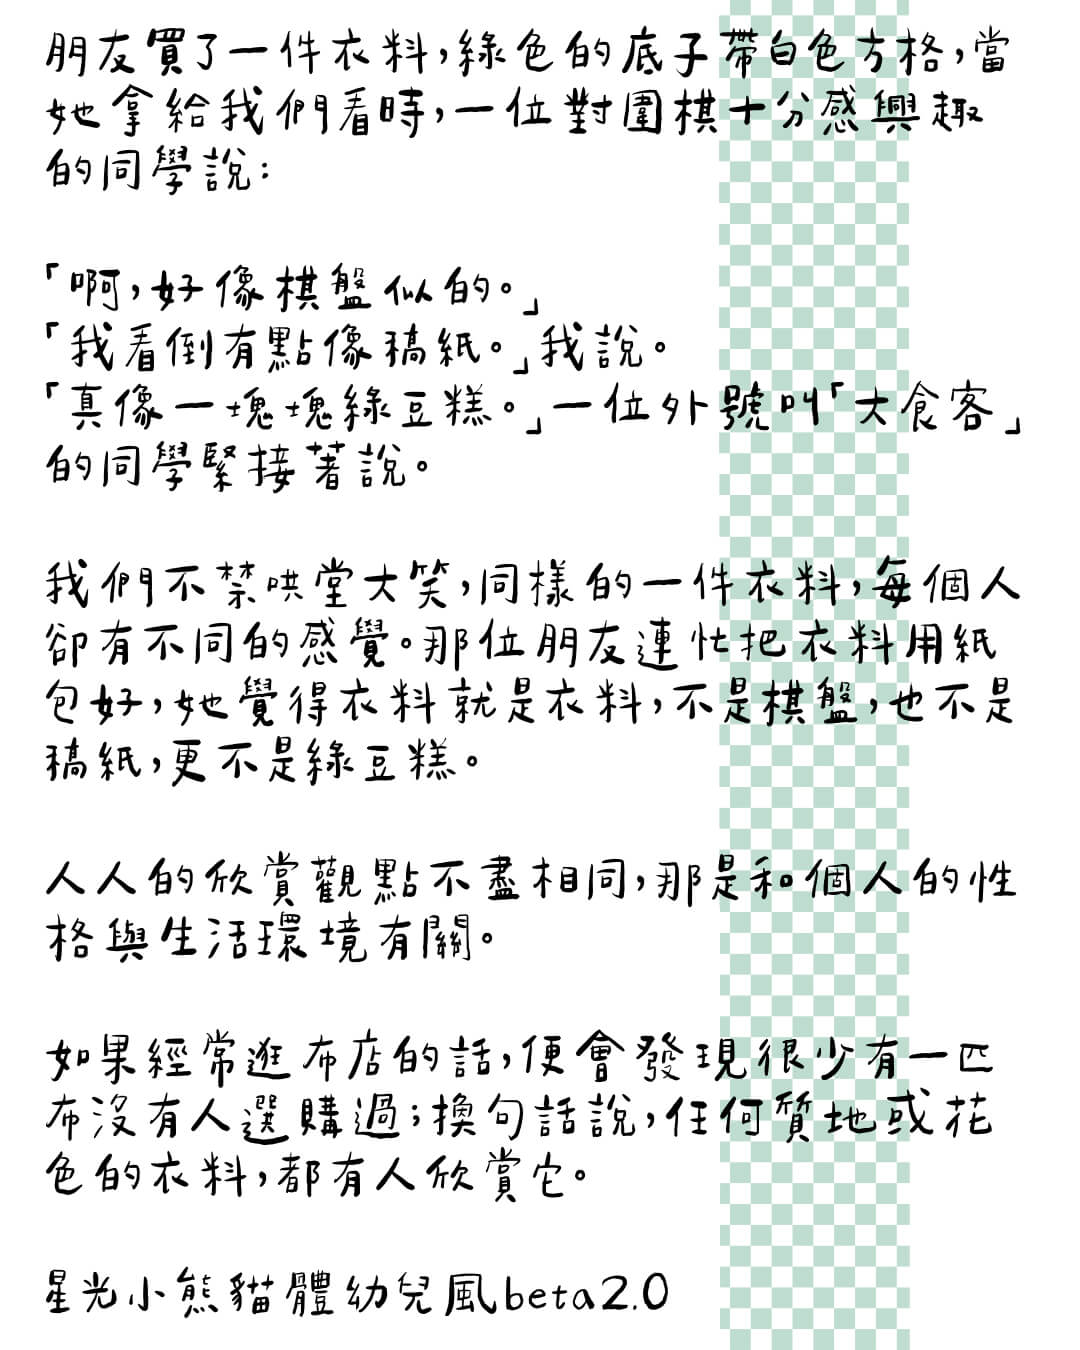 朋友買了一件衣料，綠色的底子帶白色方格，當
她拿給我們看時，一位對圍棋十分感興趣
的同學說：
「啊，好像棋盤似的。」
「我看倒有點像稿紙。」我說。
「真像一塊塊綠豆糕。」一位外號叫「大食客」
的同學緊接著說。
我們不禁哄堂大笑，同樣的一件衣料，每個人
卻有不同的感覺。那位朋友連忙把衣料用紙
包好，她覺得衣料就是衣料，不是棋盤，也不是
稿紙，更不是綠豆糕。
人人的欣賞觀點不盡相同，那是和個人的性
格與生活環境有關。
如果經常逛布店的話，便會發現很少有一匹
布沒有人選購過；換句話說，任何質地或花
色的衣料，都有人欣賞它。
星光小熊貓體幼兒風beta2.0